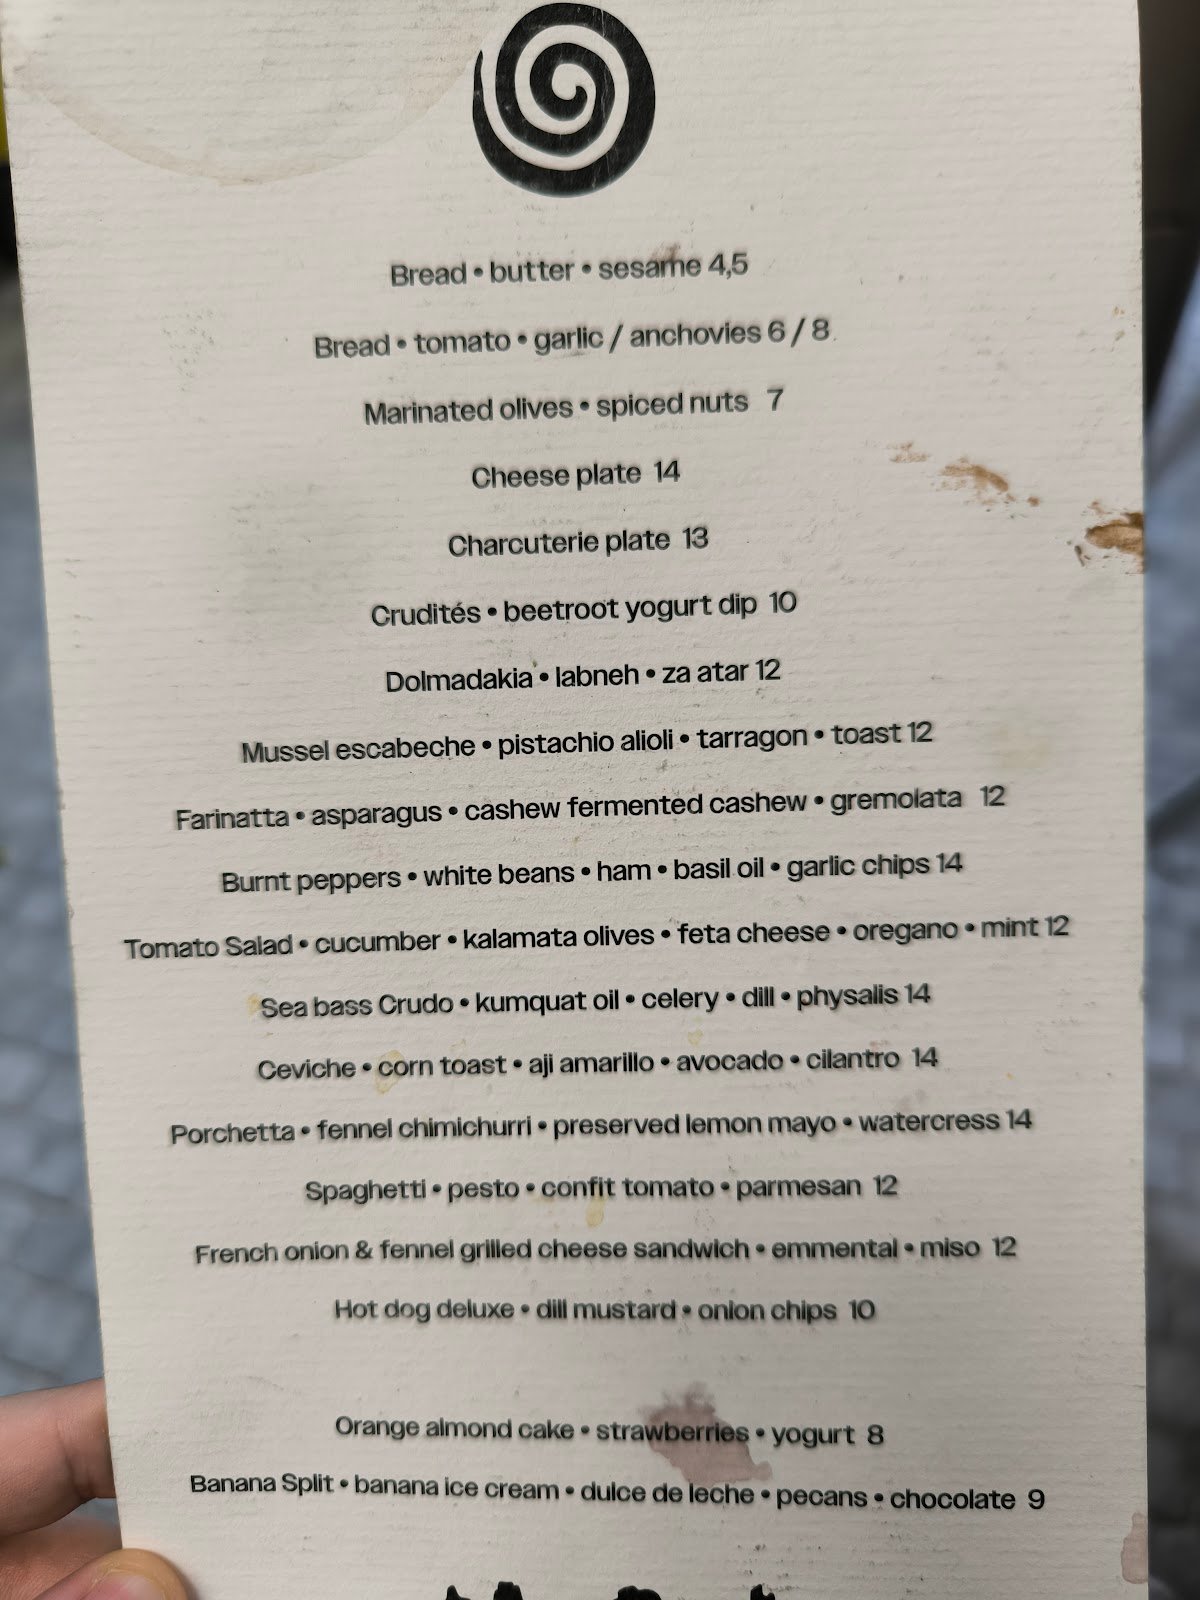 Bread • butter • sesame 4,5
Bread • tomato • garlic / anchovies 6 / 8
Marinated olives • spiced nuts 7
Cheese plate 14
Charcuterie plate 13
Crudités • beetroot yogurt dip 10
Dolmadakia • labneh • za atar 12
Mussel escabeche • pistachio alioli • tarragon • toast 12
Farinatta • asparagus • cashew fermented cashew • gremolata 12
Burnt peppers • white beans • ham • basil oil • garlic chips 14
Tomato Salad • cucumber • kalamata olives • feta cheese • oregano • mint 12
Sea bass Crudo • kumquat oil • celery • dill • physalis 14
Ceviche • corn toast • aji amarillo • avocado • cilantro 14
Porchetta • fennel chimichurri • preserved lemon mayo • watercress 14
Spaghetti • pesto • confit tomato • parmesan 12
French onion & fennel grilled cheese sandwich • emmental • miso 12
Hot dog deluxe • dill mustard • onion chips 10
Orange almond cake • strawberries • yogurt 8
Banana Split • banana ice cream • dulce de leche • pecans • chocolate 9